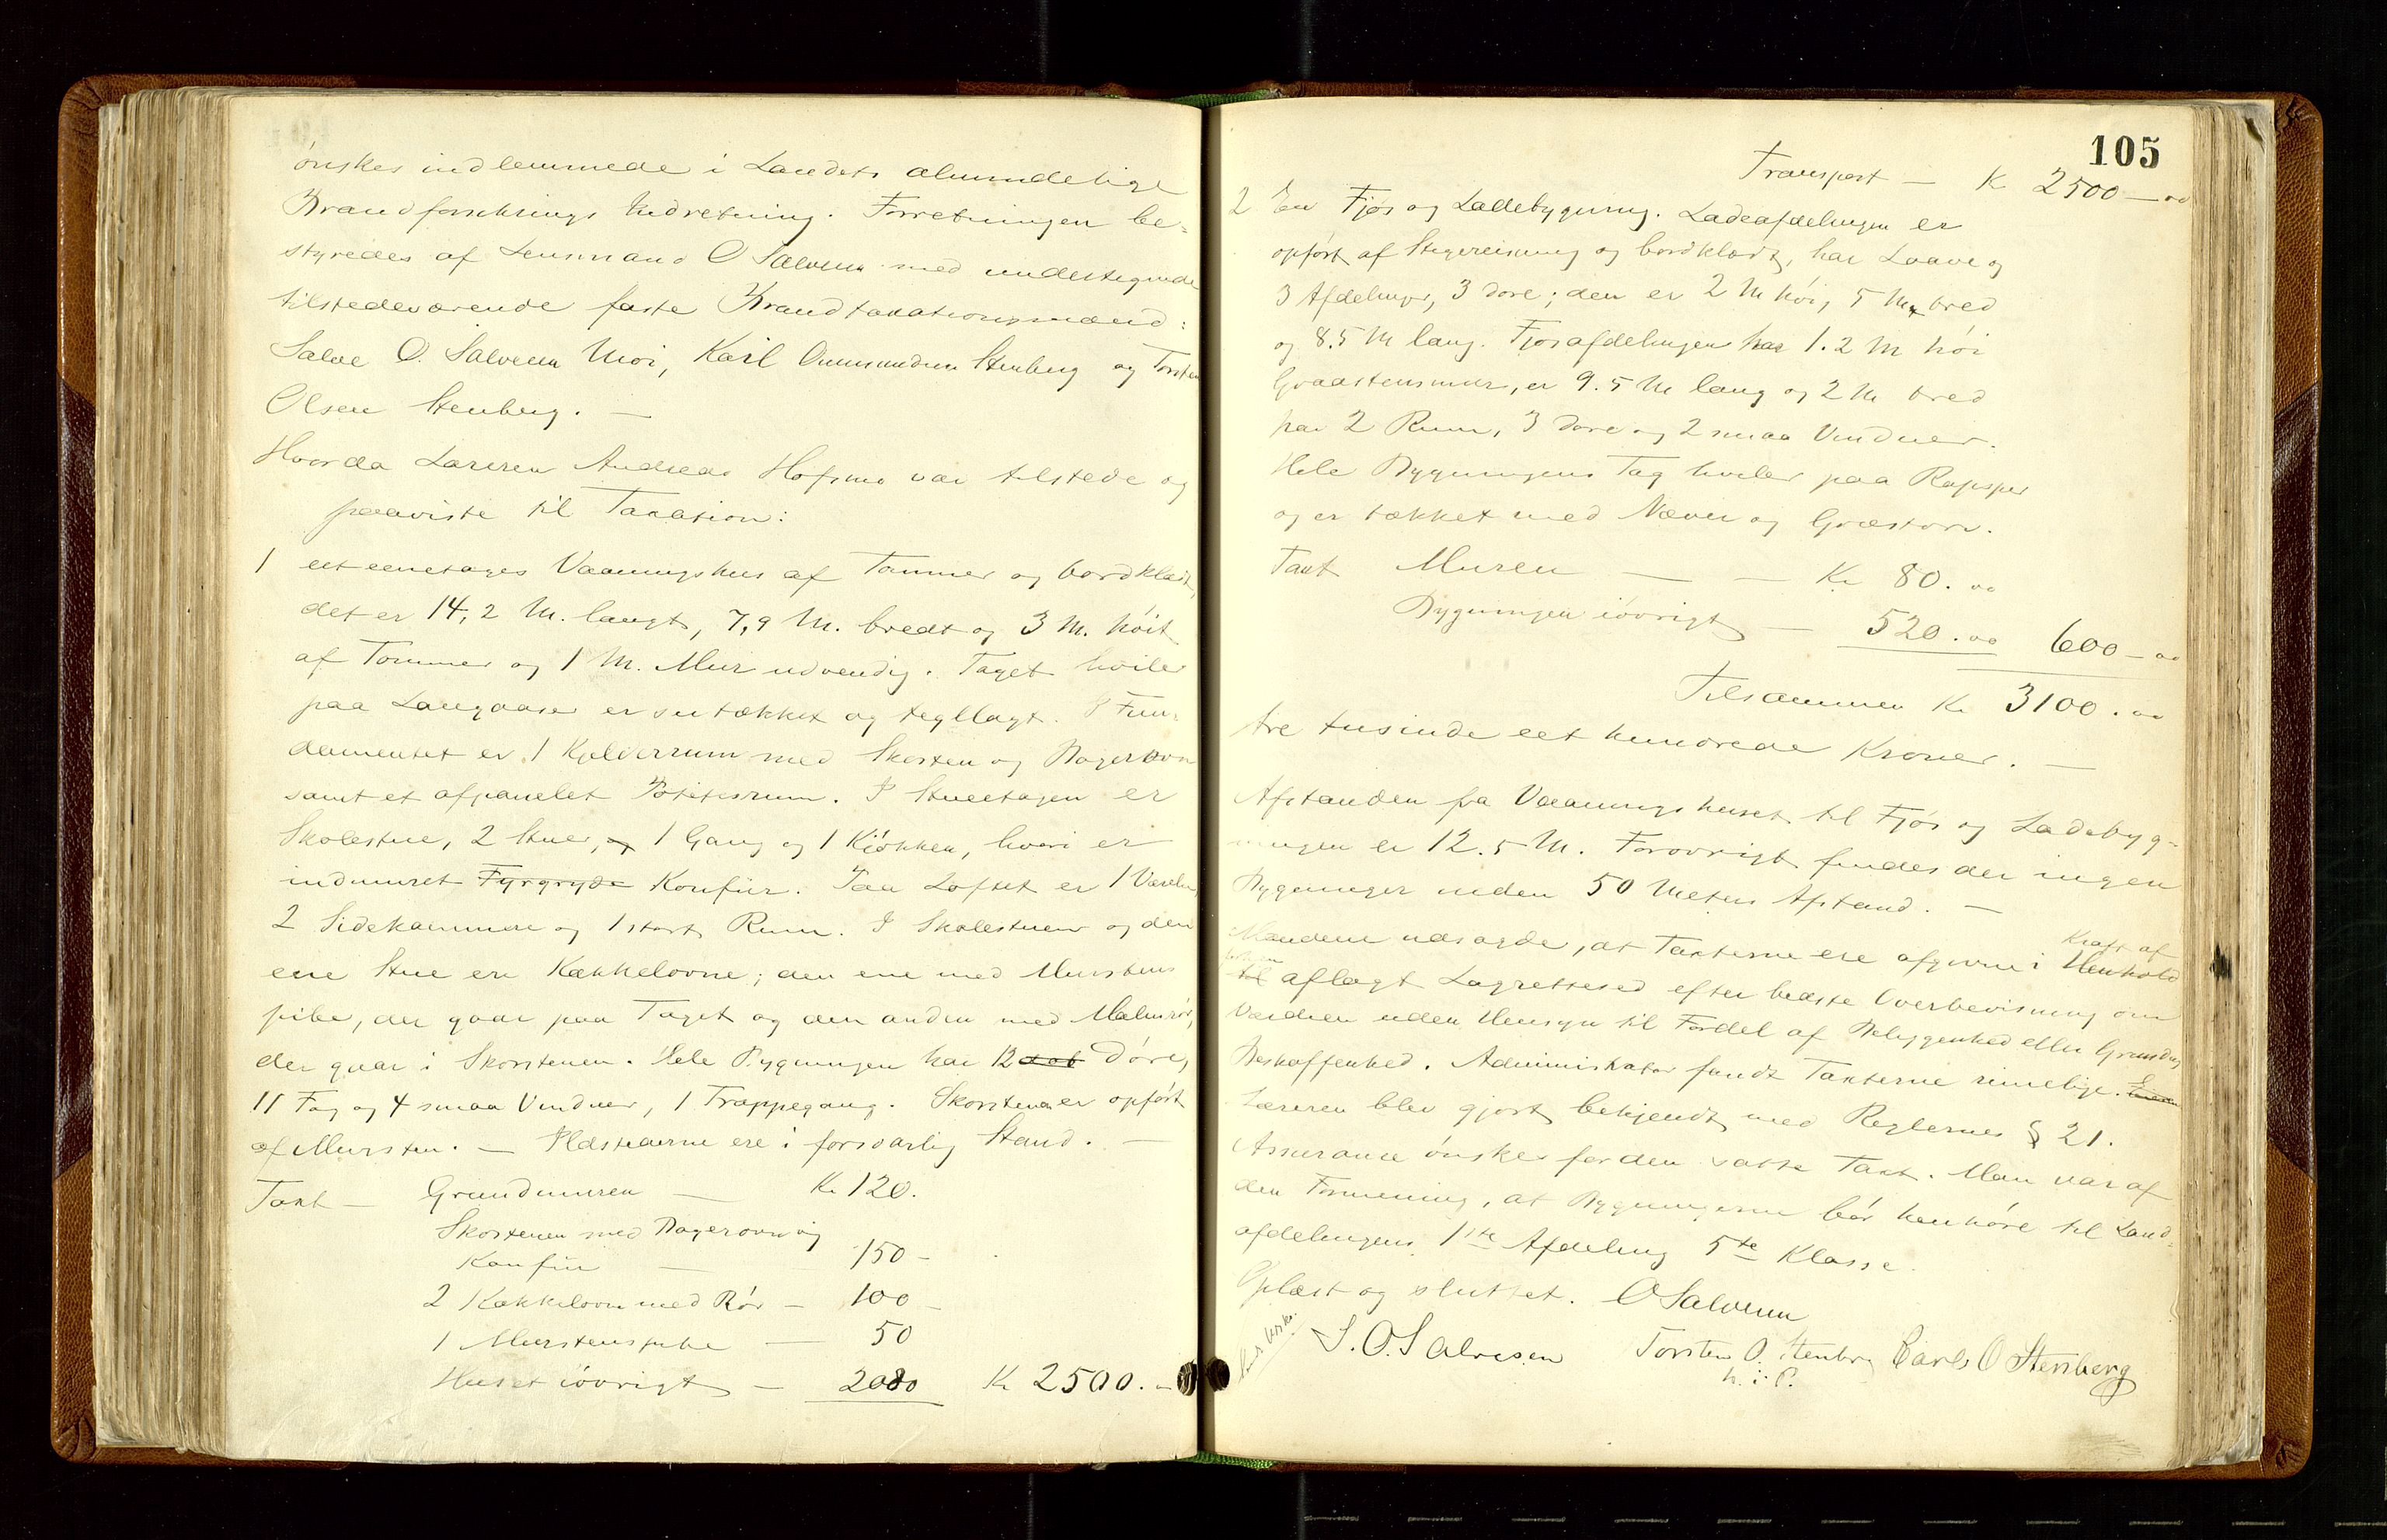 ønskes indlemmede i Landets almindelige
Brandforsikrings Indretning. Forretningen be-
styredes af Lensmand O Salvesen med undertegnede
tilstedeværende faste Brandtaxationsmænd:
Salve O. Salvesen Moi, Karl Ommundsen Stenberg og Torsten
Olsen Stenberg. —
Hvorda Læreren Andreas Hofsmo var tilstede og
paaviste til Taxation:
1 eet eenetages Vaaningshus af Tømmer og bordklædt,
det er 14,2 M. langt, 7,9 M. bredt og 3 M. høit
af Tømmer og 1 M. Mur udvendig. Taget hviler
paa Langaaser er sutækket og tegllagt. I Fun-
damentet er 1 Kjelderrum med Skorsten og Bagerovn
samt et afpanelet Potetesrum. I Stueetagen er
Skolestue, 2 Stuer, og 1 Gang og 1 Kjøkken, hvori er
indmuret Fyrgryde Komfur. Paa Loftet er 1 Værelse,
2 Sidekammere og 1 stort Rum. I Skolestuen og den
ene Stue ere Kakkelovne; den ene med Murstens
pibe, der gaar paa Taget og den anden med Malmrør,
der gaar i Skorstenen. Hele Bygningen har 12 Døre,
11 Fag og 4 smaa Vinduer, 1 Trappegang. Skorstenen er opført
af Mursten. — Ildstederne ere i forsvarlig Stand. —
Taxt — Grundmuren — Kr 120.
Skorstenen med Bagerovn og
Komfur — 150 –
2 Kakkelovne med Rør — 100 –
1 Murstenspibe — 50
Huset iøvrigt — 2080 Kr 2500. –
105
Transport — Kr 2500 — 00
2 En Fjøs og Ladebygning. Ladeafdelingen er
opført af Stegereisning og bordklædt, har Laave og
3 Afdelinger, 3 Døre; den er 2 M høi, 5 M bred
og 8.5 M lang. Fjøsafdelingen har 1.2 M høi
Graastensmur, er 9.5 M lang og 2 M bred
har 2 Rum, 3 Døre og 2 smaa Vinduer.
Hele Bygningens Tag hviler paa
og er tækket med Næver og Græstorv.
Taxt Muren — — Kr 80. 00
Bygningen iøvrigt — 520. 00 600 – 00
Tilsammen Kr 3100. 00
tre tusinde eet hundrede Kroner. —
Afstanden fra Vaaningshuset til Fjøs og Ladebyg-
ningen er 12.5 M. Forøvrigt findes der ingen
Bygninger inden 50 Meters Afstand. —
Kraft af
Mændene udsagde, at Taxterne ere afgivne i Henhold
til aflagt Lagrettesed efter bedste Overbevisning om
Værdien uden Hensyn til Fordel af Beliggenhed eller Grundens
Beskaffenhed. Administrator fandt Taxterne rimelige.
Læreren blev gjort bekjendt med Reglernes § 21.
Assurance ønskes for den satte Taxt. Man var af
den Formening, at Bygningerne bør henhøre til Land-
afdelingens 1ste Afdeling 5te Klasse.
Oplæst og sluttet. O Salvesen
S. O. Salvesen Torsten O. Stenberg Carl O Stenberg
h. i P.